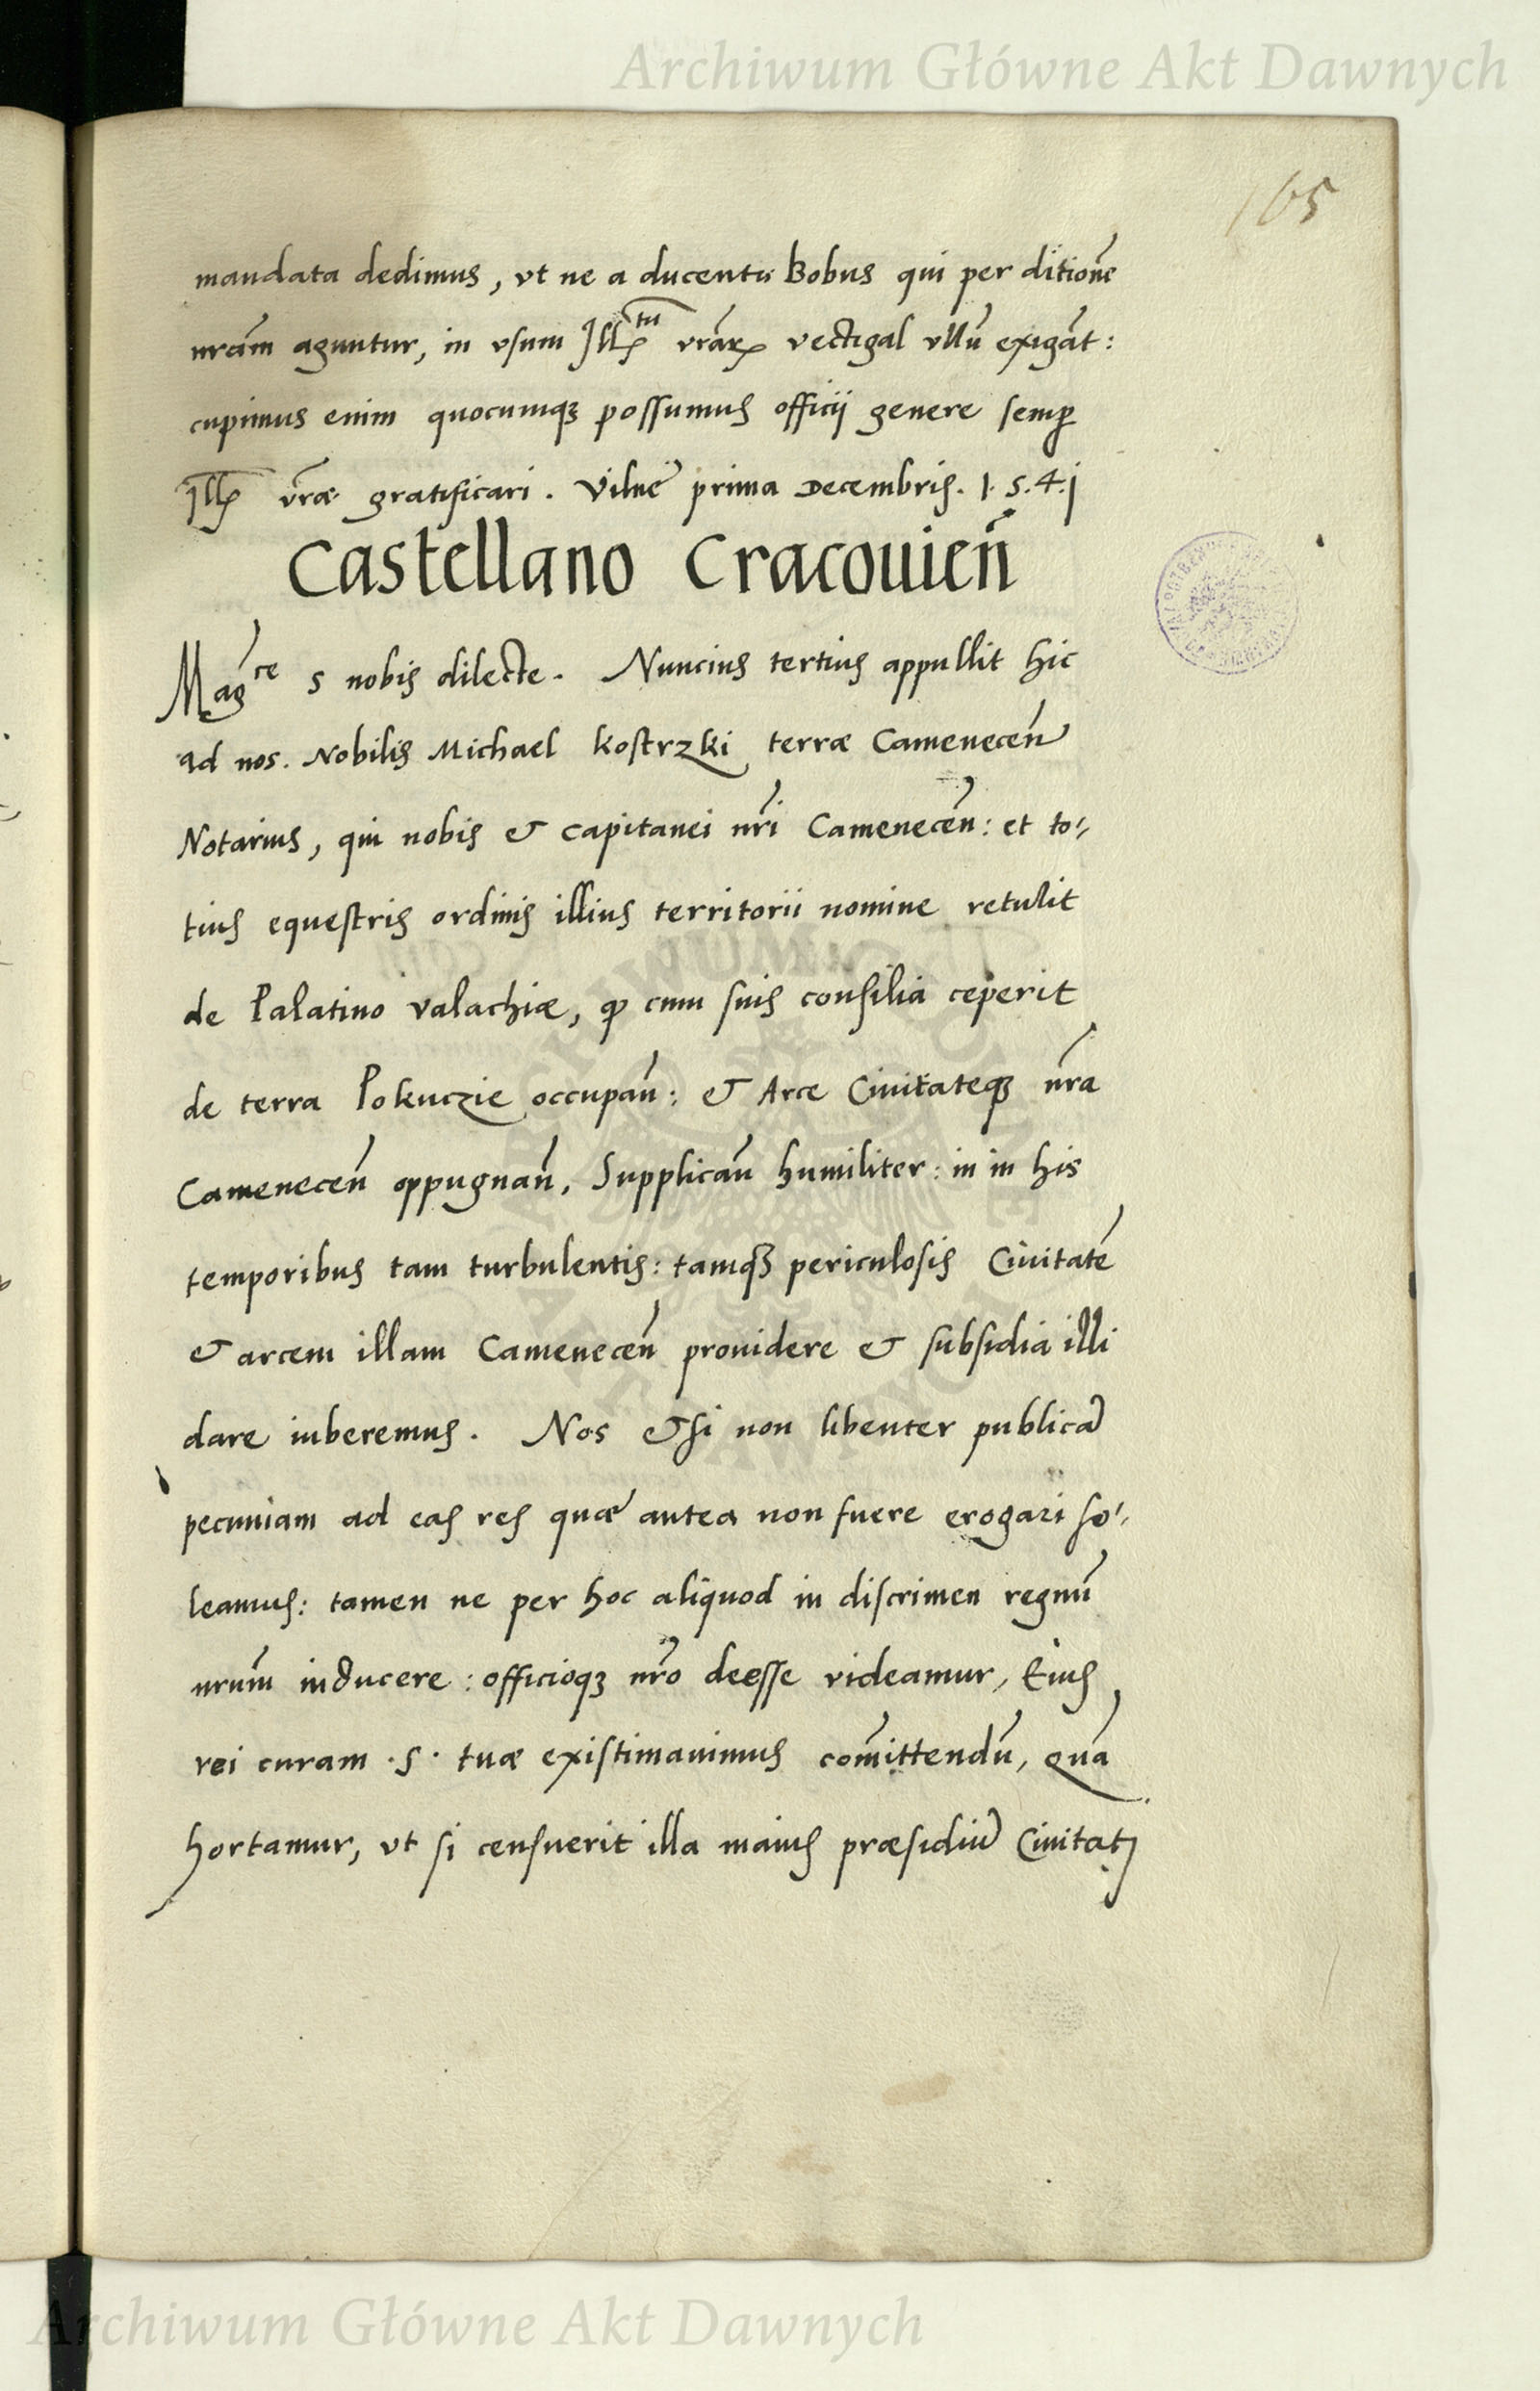 Archiwum Główne Akt Dawnych
165
mandata dedimus, vt ne a ducentis Bobus qui per ditionē
nrām aguntur, in vsum Ill vrar̄ vectigal vllū exigāt:
cupimus enim quocumqꝫ possumus officij genere semp
Ill vr̄æ gratificari. Vilnę prima Decembris. 1.5.4.j
Castellano Cracouien̄
Mag^ce s nobis dilecte. Nuncius tertius appullit hic
ad nos. Nobilis Michael Kostrzki terræ Camenecen̄
Notarius, qui nobis & Capitanei nr̄i Camenecen̄: et to-
tius equestris ordinis illius territorii nomine retulit
de Palatino valachiæ, ꝙ cum suis consilia ceperit
de terra Pokuczie occupan̄: & Arce Ciuitateqꝫ nr̄a
Camenecen̄ oppugnan̄, Supplican̄ humiliter: in in his
temporibus tam turbulentis: tamqꝫ periculosis Ciuitatē
& arcem illam Camenecen̄ prouidere & subsidia illi
dare iuberemus. Nos &si non libenter publicā
pecuniam ad eas res quæ antea non fuere erogari so-
leamus: tamen ne per hoc aliquod in discrimen regnū
nrūm inducere: officioqꝫ nr̄o deesse videamur, Eius
rei curam .S. tuæ existimauimus com̄ittendū, quā
hortamur, vt si censuerit illa maius præsidiū Ciuitatj
Archiwum Główne Akt Dawnych